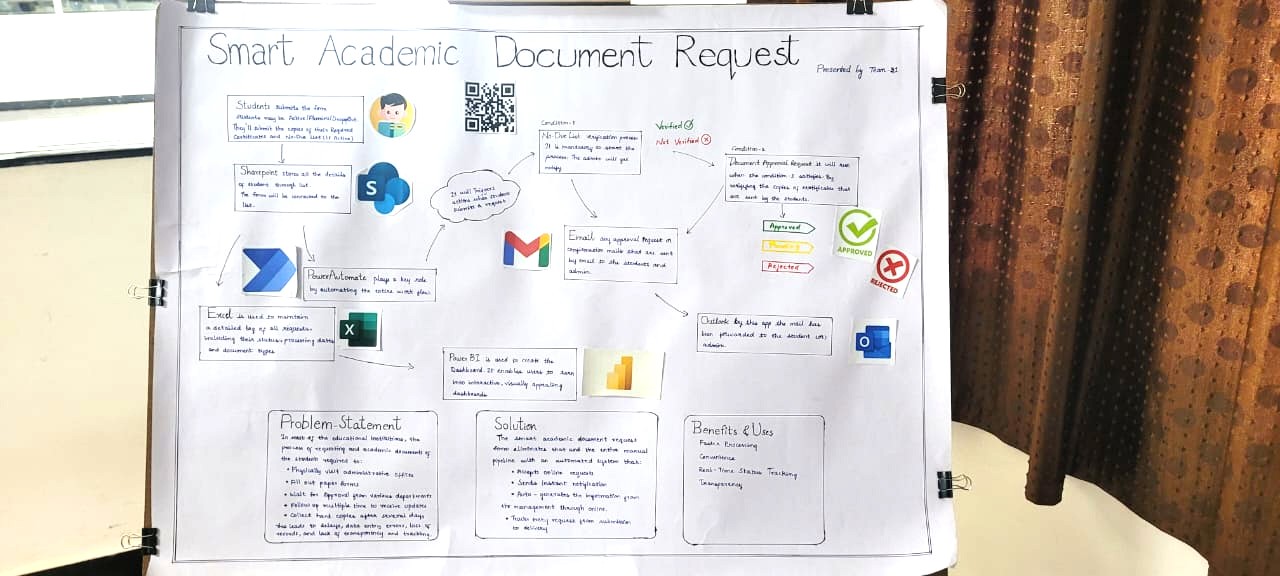 Smart Academic Document Request
Presented by Team-21
Students submits the form
students may be Active/Alumni/Dropout
They'll submit the copies of their Required
Certificates and No-Due List (if Active)
Sharepoint stores all the details
of student through list.
The forms will be connected to the
list.
S
PowerAutomate plays a key role
by automating the entire work flow.
Excel is used to maintain
a detailed log of all requests-
including their status, processing dates
and document types
X
It will Triggers
actions when students
submits a request
Condition-1
No-Due List verification process
It is mandatory to start the
process. The admin will get
notify
Verified
Not Verified
Condition-2
Document Approval Request it will run
when the condition-1 satisfies. By
verifying the copies of certificates that
are sent by the students.
Approved
Pending
Rejected
APPROVED
REJECTED
Email any approval Request or
confirmation mails that are sent
by email to the students and
admin.
Outlook by this app the mail has
been forwarded to the student (or)
admin.
O
Power BI is used to create the
Dashboard. It enables users to turn
into interactive, visually appealing
dashboards
Problem-Statement
In most of the educational institutions, the
process of requesting and academic documents of
the students required to:
• Physically visit administrative offices
• Fill out paper forms
• Wait for Approval from various departments
• Follow up multiple time to receive updates
• Collect hard copies after several days
This leads to delays, data entry errors, loss of
records, and lack of transparency and tracking.
Solution
The smart academic document request
form eliminates that and the entire manual
pipeline with an automated system that:
• Accepts online requests
• Sends Instant notification
• Auto-generates the information from
the management through online.
• Tracks every request from submission
to delivery
Benefits & Uses
Faster Processing
Convenience
Real-Time Status Tracking
Transparency